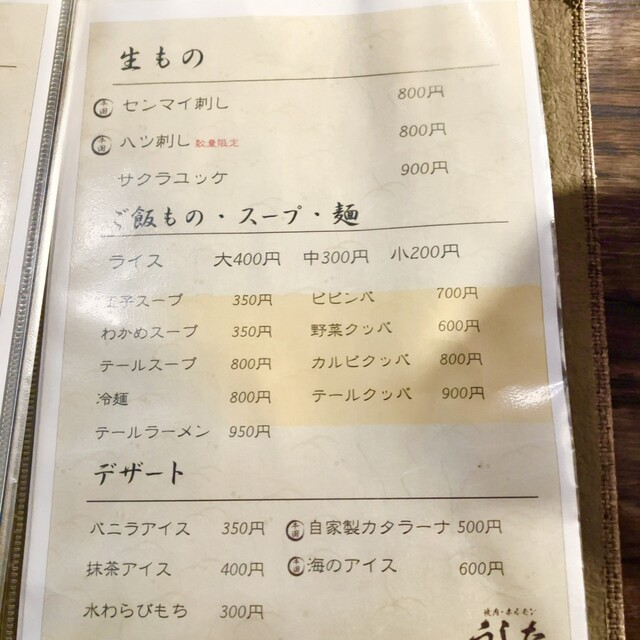 生もの
センマイ刺し 800円
ハツ刺し 数量限定 800円
サクラユッケ 900円
ご飯もの・スープ・麺
ライス 大400円 中300円 小200円
玉子スープ 350円 ビビンバ 700円
わかめスープ 350円 野菜クッパ 600円
テールスープ 800円 カルビクッパ 800円
冷麺 800円 テールクッパ 900円
テールラーメン 950円
デザート
バニラアイス 350円 自家製カタラーナ 500円
抹茶アイス 400円 海のアイス 600円
水わらびもち 300円
焼肉・ホルモン